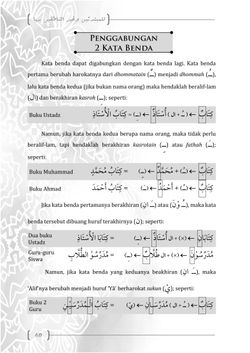 PENGGABUNGAN
2 KATA BENDA
Kata benda dapat digabungkan dengan kata benda lagi. Kata benda
pertama berubah harokatnya dari dhommatain (ـٌ) menjadi dhommah (ـُ),
lalu kata benda kedua (jika bukan nama orang) maka hendaklah beralif-lam
(الْ) dan berakhiran kasroh (ـِ); seperti:
Buku Ustadz كِتَابُ الْأُسْتَاذِ = (ـِ) ← (ـُ + ال) أُسْتَاذٌ + كِتَابٌ
Namun, jika kata benda kedua berupa nama orang, maka tidak perlu
beralif-lam, tapi hendaklah berakhiran kasrotain (ـٍ) atau fathah (ـَ);
seperti:
Buku Muhammad كِتَابُ مُحَمَّدٍ = (ـٍ) ← مُحَمَّدٌ + (ـُ) ← كِتَابٌ
Buku Ahmad كِتَابُ أَحْمَدَ = (ـَ) ← أَحْمَدُ + (ـُ) ← كِتَابٌ
Jika kata benda pertamanya berakhiran (ـَانِ) atau (ـُوْنَ), maka kata
benda tersebut dibuang huruf terakhirnya (ن); seperti:
Dua buku
Ustadz كِتَابَا الْأُسْتَاذِ = (ـِ) ← أُسْتَاذٌ + ال (×) ← كِتَابَانِ
Guru-guru
Siswa مُدَرِّسُوْ الطُّلَّابِ = (ـِ) ← طُلَّابٌ + ال (×) ← مُدَرِّسُوْنَ
Namun, jika kata benda yang keduanya beakhiran (ـَانِ), maka
'Alif'nya berubah menjadi huruf 'Ya' berharokat sukun (يْ); seperti:
Buku 2
Guru كِتَابُ الْمُدَرِّسَيْنِ = (يْ) ← مُدَرِّسَانِ + ال (ـُ) ← كِتَابٌ